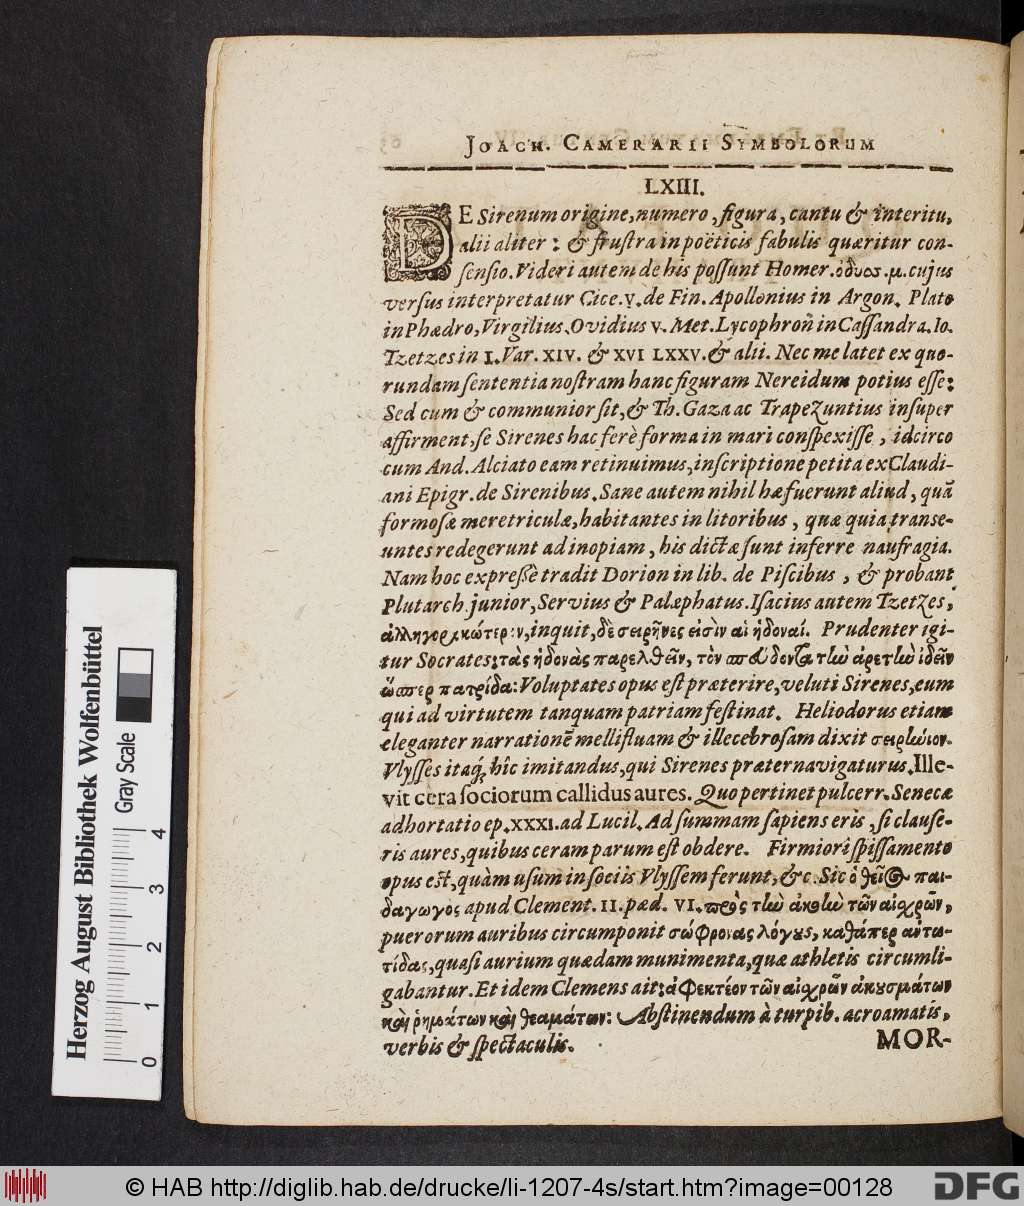 JOACH. CAMERARII SYMBOLORUM
LXIII.
DE Sirenum origine, numero, figura, cantu & interitu,
alii aliter: & frustra in poëticis fabulis quæritur con-
sensio. Videri autem de his possunt Homer. ὀδυσ. μ. cujus
versus interpretatur Cice. v. de Fin. Apollonius in Argon. Plato
in Phædro, Virgilius. Ovidius v. Met. Lycophron in Cassandra. Io.
Tzetzes in I. Var. XIV. & XVI LXXV. & alii. Nec me latet ex quo-
rundam sententia nostram hanc figuram Nereidum potius esse:
Sed cum & communior sit, & Th. Gaza ac Trapezuntius insuper
affirment, se Sirenes hac ferè forma in mari conspexisse, idcirco
cum And. Alciato eam retinuimus, inscriptione petita ex Claudi-
ani Epigr. de Sirenibus. Sane autem nihil hæ fuerunt aliud, quã
formosæ meretriculæ, habitantes in litoribus, quæ quia transe-
untes redegerunt ad inopiam, his dictæ sunt inferre naufragia.
Nam hoc expreßè tradit Dorion in lib. de Piscibus, & probant
Plutarch. junior, Servius & Palæphatus. Isacius autem Tzetzes,
ἀλληγορικώτερον, inquit, δὲ σειρῆνες εἰσὶν αἱ ἡδοναί. Prudenter igi-
tur Socrates: τὰς ἡδονὰς παρελθεῖν, τὸν σπεύδοντα τὴν ἀρετὴν ἰδεῖν
ὥσπερ πατρίδα: Voluptates opus est præterire, veluti Sirenes, eum
qui ad virtutem tanquam patriam festinat. Heliodorus etiam
eleganter narrationẽ mellifluam & illecebrosam dixit σειρήνιον.
Vlysses itaq; hîc imitandus, qui Sirenes præternavigaturus. Ille-
vit cera sociorum callidus aures. Quo pertinet pulcerr. Senecæ
adhortatio ep. XXXI. ad Lucil. Ad summam sapiens eris, si clause-
ris aures, quibus ceram parum est obdere. Firmiori spissamento
opus est, quàm usum in sociis Vlyssem ferunt, &c. Sic ὁ θεῖος παι-
δαγωγὸς apud Clement. II. pæd. VI. πρὸς τὴν ἀκοὴν τῶν αἰσχρῶν,
puerorum auribus circumponit σώφρονας λόγους, καθάπερ αὐτω-
τίδας, quasi aurium quædam munimenta, quæ athletis circumli-
gabantur. Et idem Clemens ait: ἀφεκτέον τῶν αἰσχρῶν ἀκουσμάτων
καὶ ῥημάτων καὶ θεαμάτων: Abstinendum à turpib. acroamatis,
verbis & spectaculis.
MOR-
Herzog August Bibliothek Wolfenbüttel
Gray Scale
0 1 2 3 4
© HAB http://diglib.hab.de/drucke/li-1207-4s/start.htm?image=00128
DFG